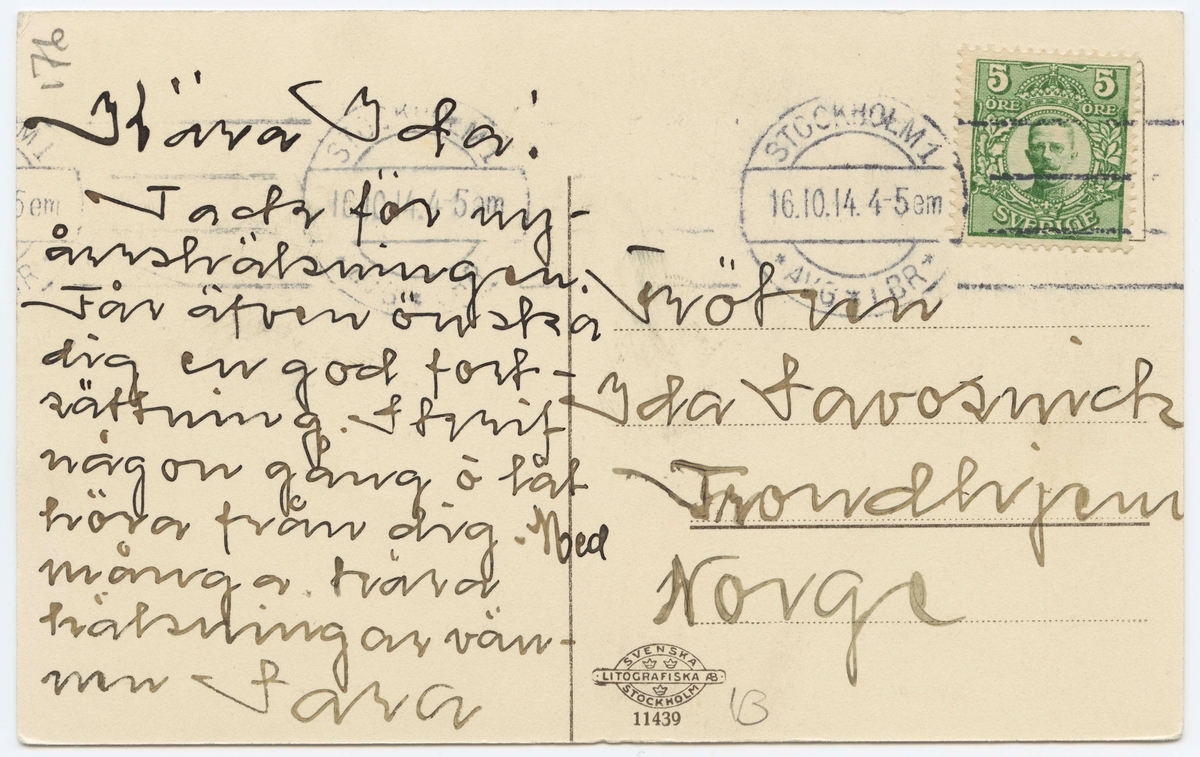 176
Kära Ida!
Tack för ny-
årshälsningen.
Får äfven önska
dig en god fort-
sättning. Skrif
någon gång o låt
höra från dig. Med
många kära
hälsningar vän-
nen Sara
STOCKHOLM 1
16.10.14. 4-5 em
* AVG * 1 BR *
STOCKHOLM 1
16.10.14. 4-5 em
5 em
5 5
ÖRE ÖRE
SVERIGE
Fröken
Ida Savosnick
Trondhjem
Norge
SVENSKA
LITOGRAFISKA AB
STOCKHOLM
11439